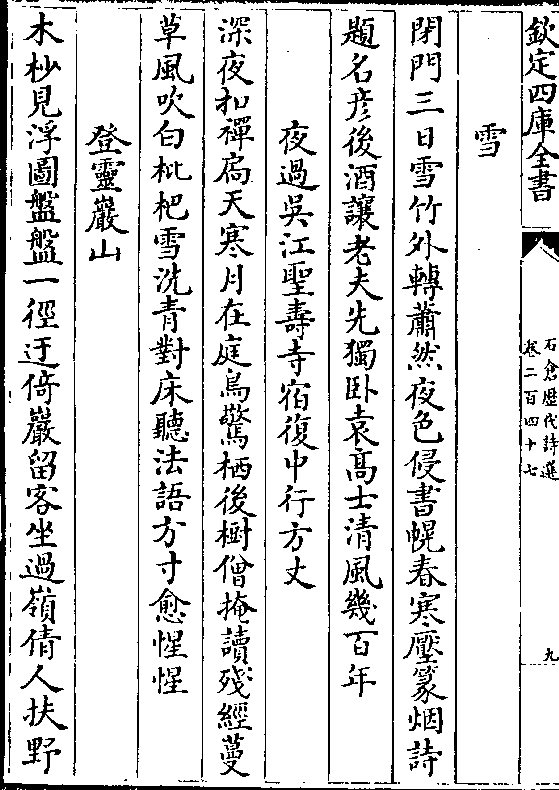 欽定四庫全書
石倉歷代詩選
卷二百四十七
九
雪
閉門三日雪竹外轉蕭然夜色侵書幌春寒壓篆烟詩
題名彦後酒讓老夫先獨卧袁高士清風幾百年
夜過吳江聖壽寺宿復中行方丈
深夜扣禪扃天寒月在庭鳥驚栖後樹僧掩讀殘經蔓
草風吹白枇杷雪洗青對床聽法語方寸愈惺惺
登靈巖山
木杪見浮圖盤盤一徑迂倚巖留客坐過嶺倩人扶野